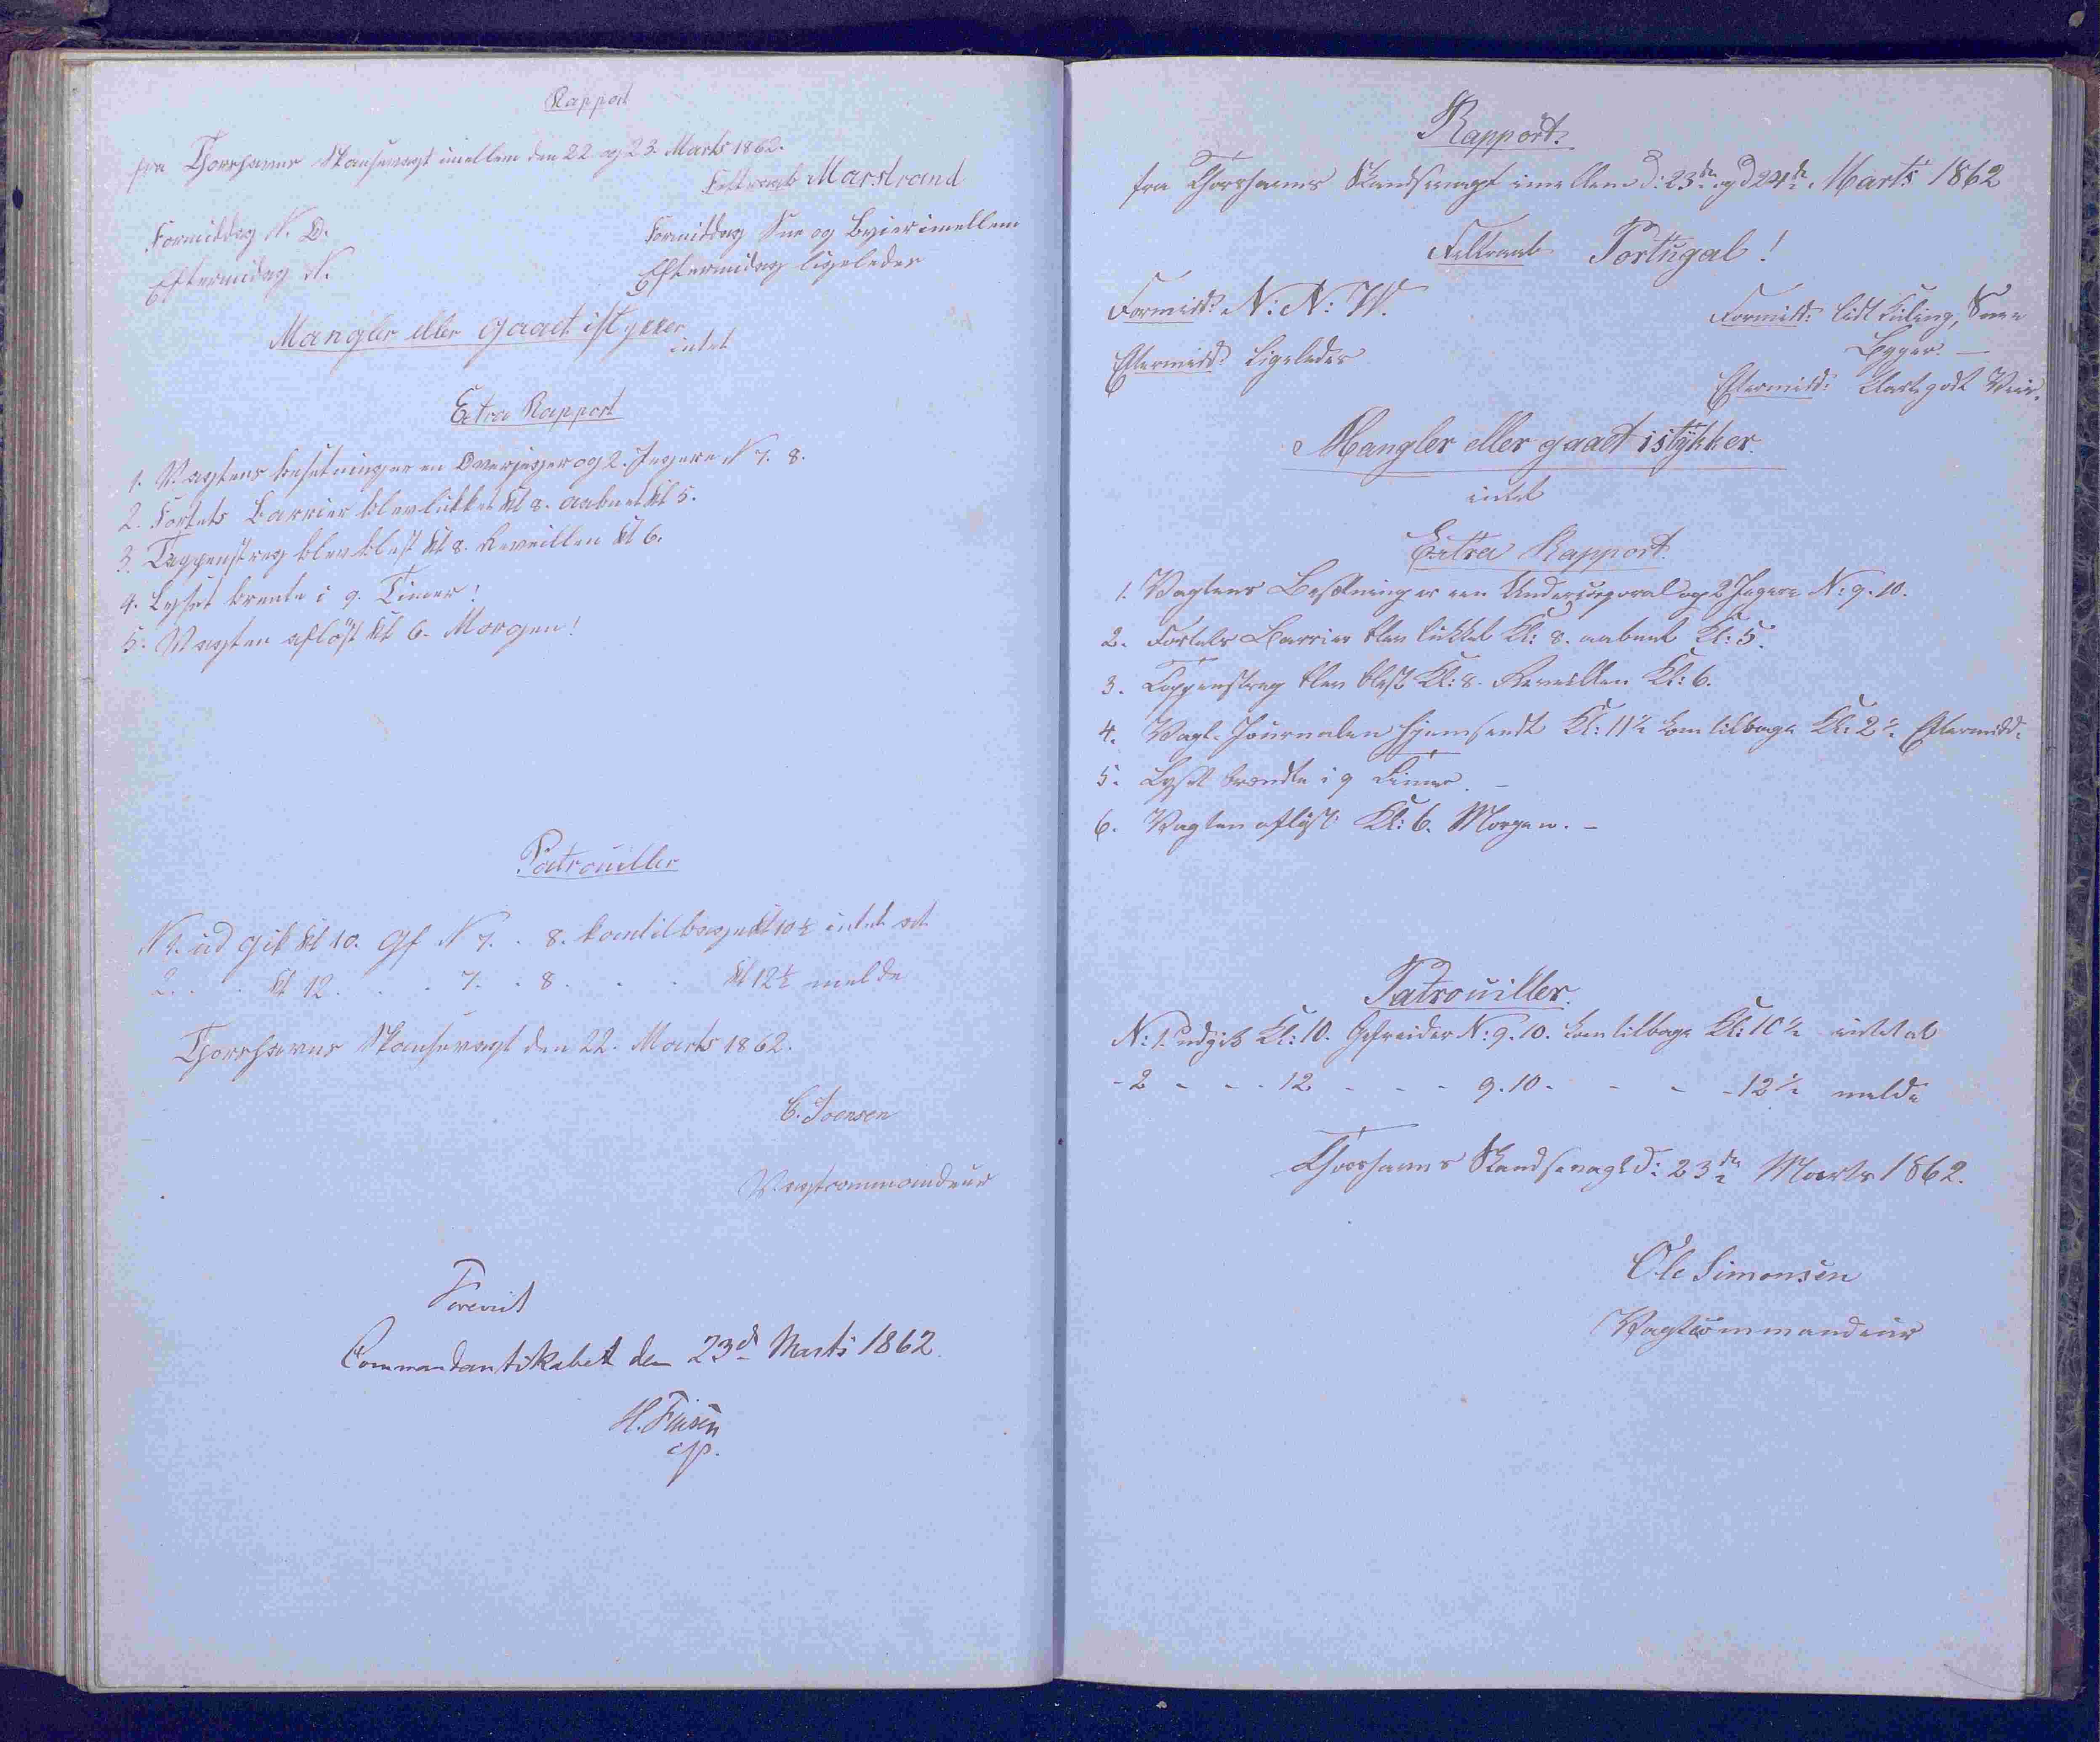 Rapport
fra Thorshavns Skansevagt imellem den 22 og 23. Marts 1862.
Feltraab Marstrand
Formiddag N. O.
Formiddag Sne og Byier imellem
Eftermidag N.
Eftermidag ligeledes
Mangler eller gaaet istykker
intet
Extra Rapport
1. Vagtens besetning er en Overjeger og 2. Jegere N 7. 8.
2. Fortets Barrier blev lukket Kl 8. aabnet Kl 5.
3. Tappenstreg blev blest Kl 8. Reveillen Kl 6.
4. Lyset brente i 9. Timer!
5. Vagten aflöst Kl 6. Morgen!
Patrouiller
N 1. ud gik Kl 10. Gf N 7. . 8. kom tilbage Kl 10½ intet at
2. . . Kl 12. . . . 7. . 8. . . . Kl 12½ melde
Thorshavns Skansevagt den 22. Marts 1862.
C. Joensen
Vagtcommandeur
Foreviist
Commandantskabet den 23d Marts 1862.
H. Finsen
cst.
Rapport.
fra Thorshavns Skandsevagt imellem d: 23de og d 24de Marts 1862
Feltraab Portugal!
Formidd: N: N: W.
Formidd: lidt Kuling, Snee
Bÿger. —
Eftermidd: Ligeledes
Eftermidd: Klart godt Veir.
Mangler eller gaaet istÿkker.
intet
Extra Rapport
1. Vagtens Besetning er een Undercorporal og 2 Jegere N: 9. 10.
2. Fortets Barrier blev lukket Kl: 8. aabnet Kl: 5.
3. Tappenstreg blev blest Kl: 8. Reveillen Kl: 6.
4. Vagt-Journalen hjemsendt Kl: 11½ kom tilbage Kl: 2½ Eftermidd:
5. Lyset brendte i 9 Timer. –
6. Vagten afløst Kl: 6. Morgen. –
Patrouiller.
N: 1. udgik Kl: 10. Gefreider N: 9. 10. kom tilbage Kl: 10½ intet at
- 2 - - - 12 - - - 9. 10 - - - - 12½ melde
Thorshavns Skandsevagt d: 23de Marts 1862.
Ole Simonsen
Vagtcommandeur